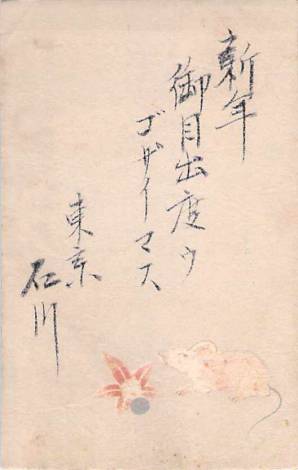 新年
御目出度ゥ
ゴザイマス
東京
石川